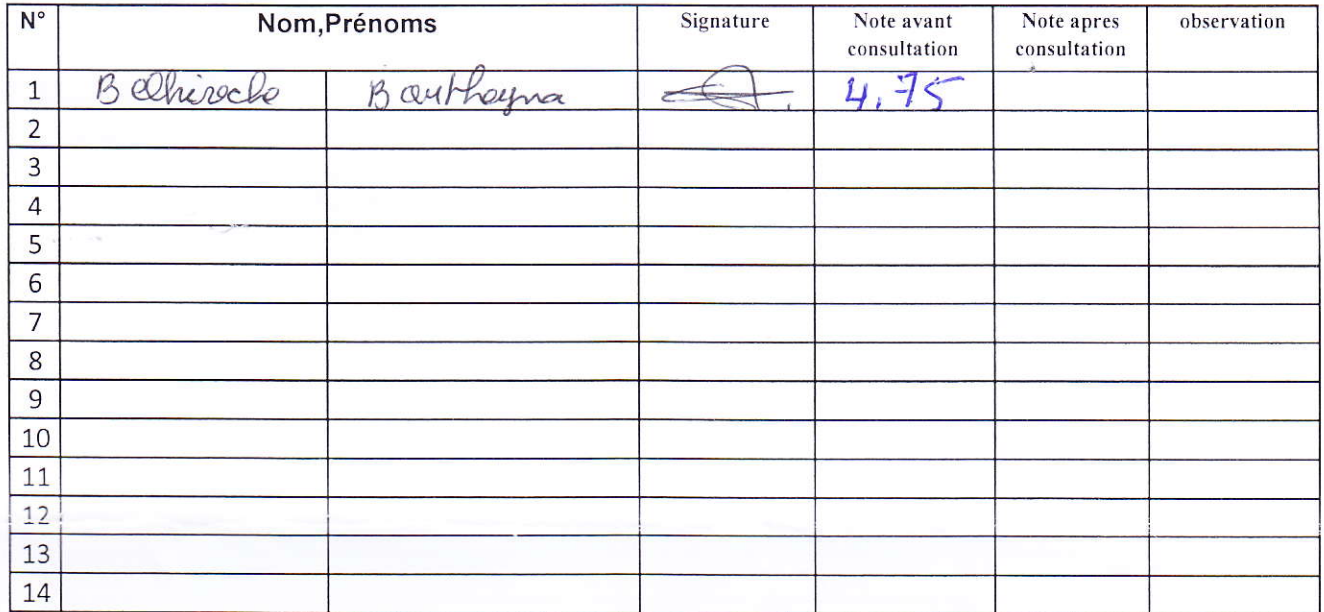 N° Nom,Prénoms Signature Note avant consultation Note apres consultation observation
1 Belhiroche Bouthayna 4.75
2
3
4
5
6
7
8
9
10
11
12
13
14